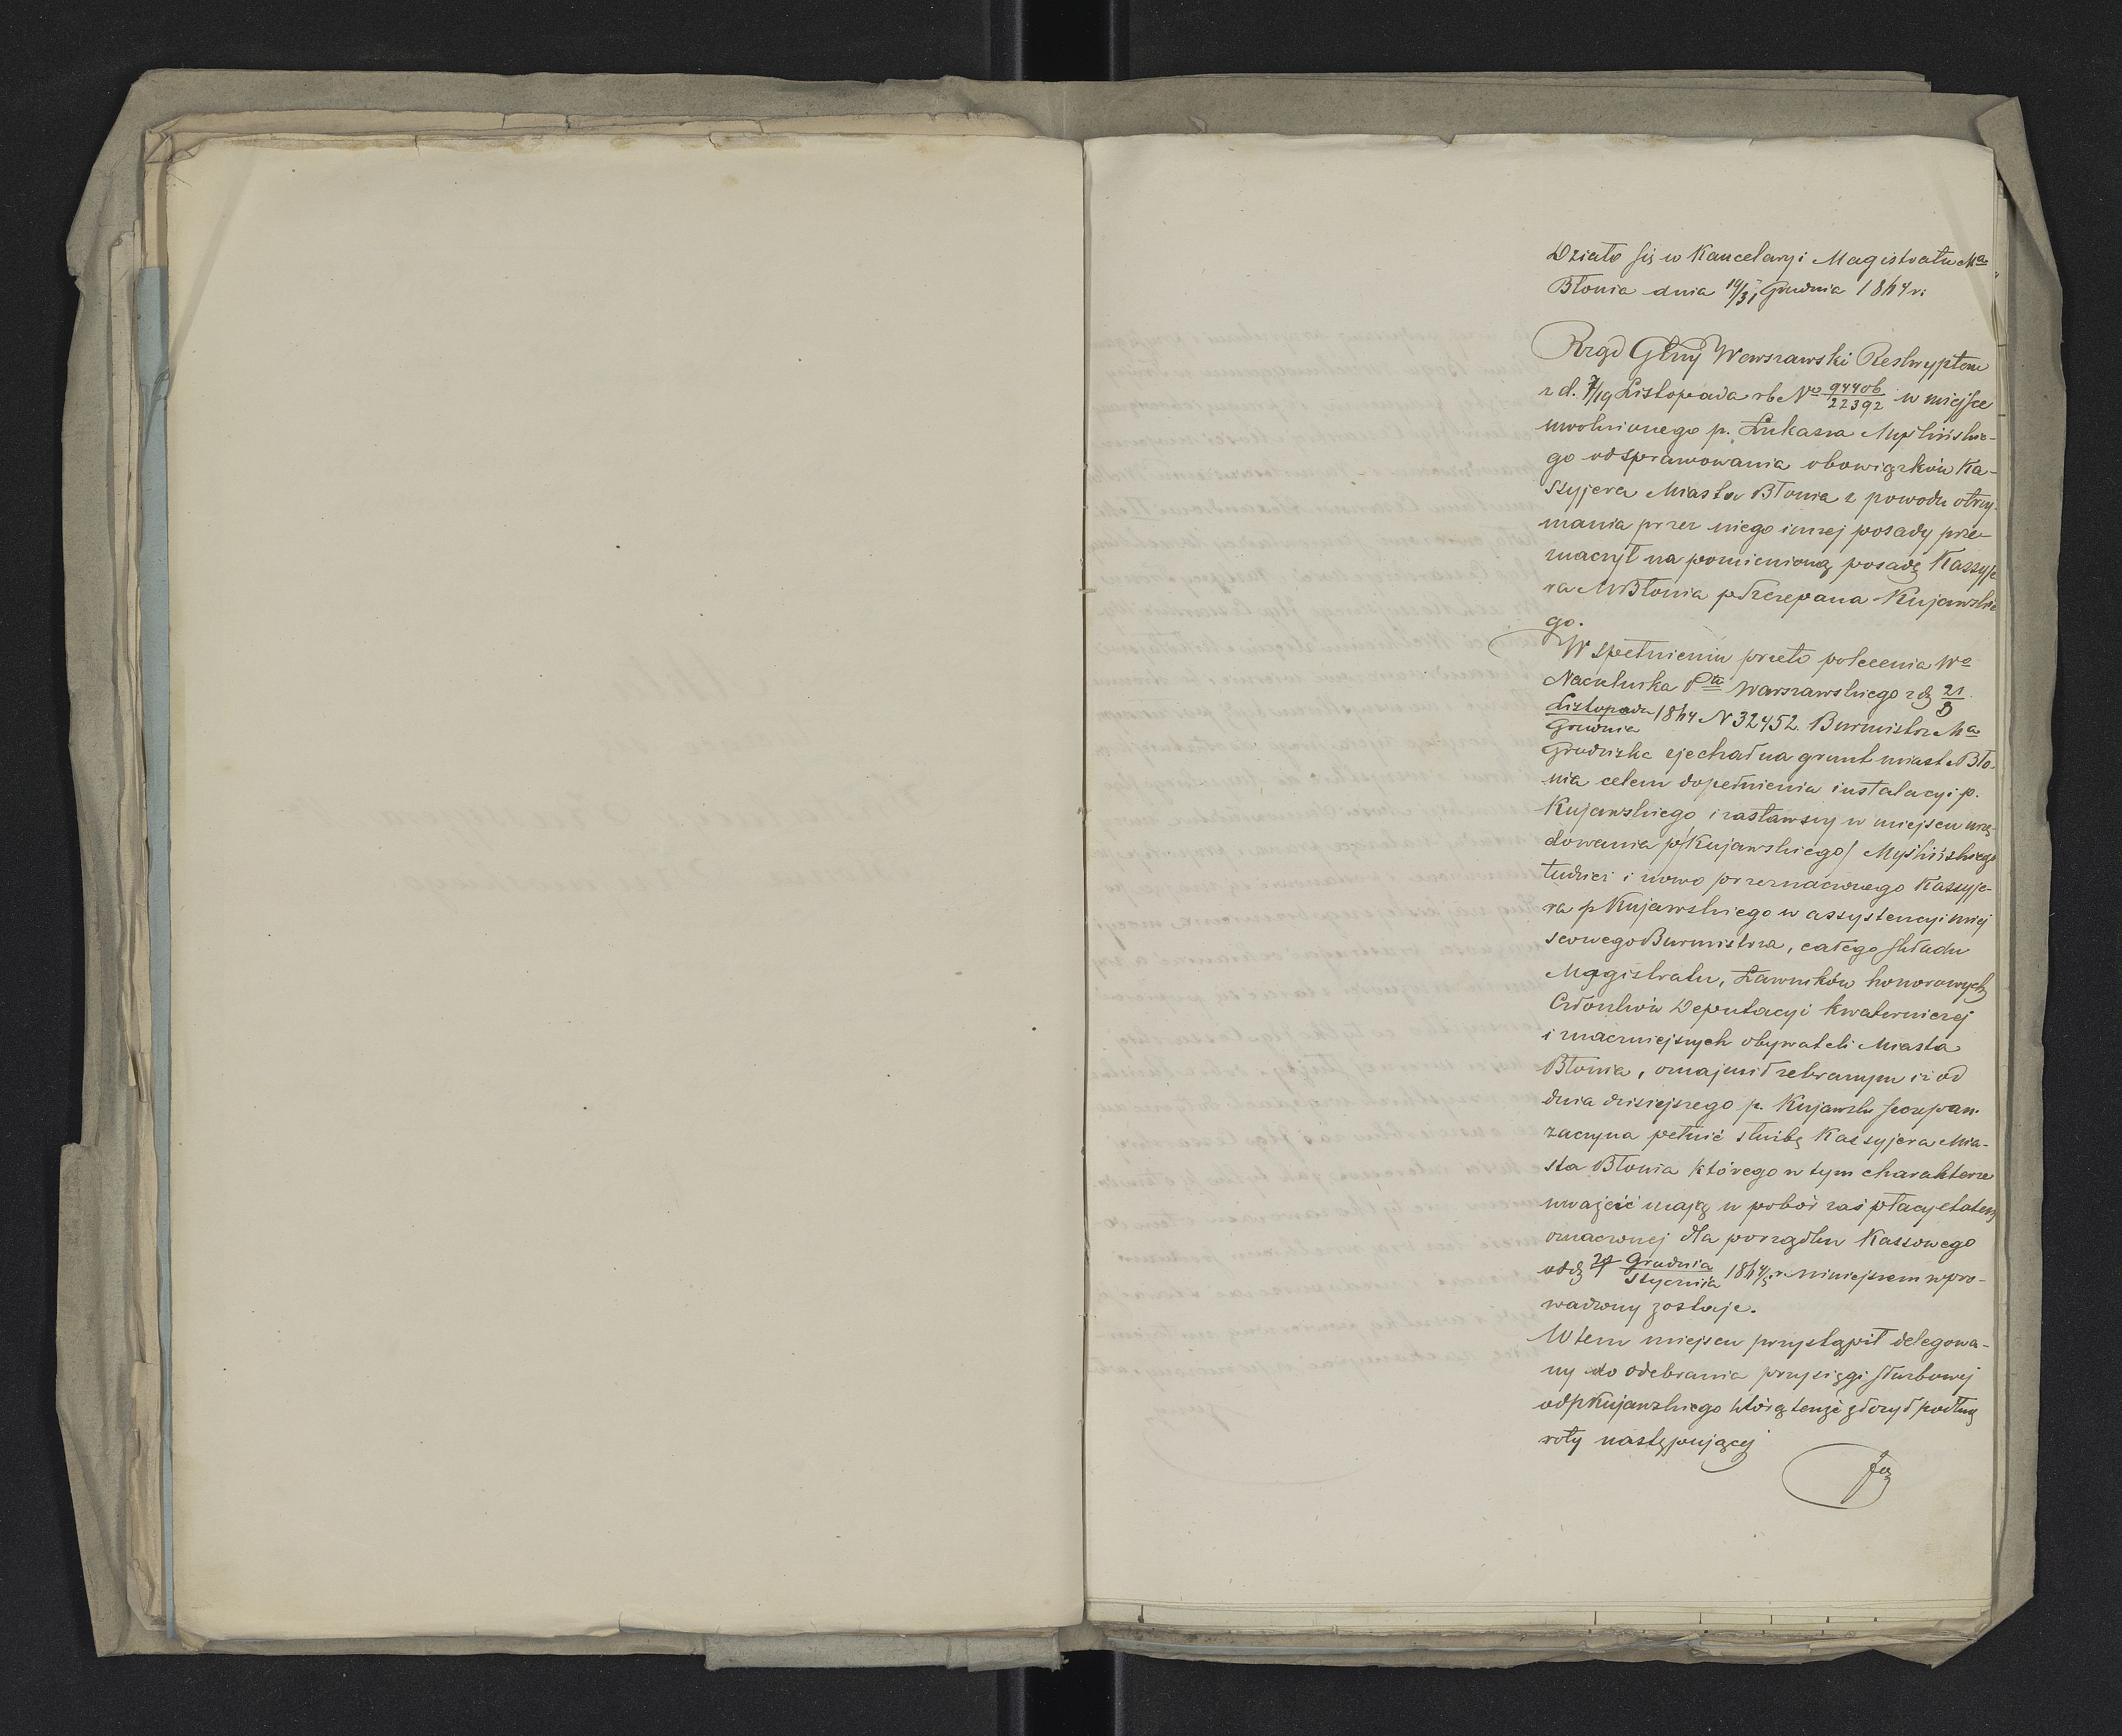 Działo się w Kancelaryi Magistratu Ma
Błonia dnia 19/31 Grudnia 1864 r:
Rząd Głny Warszawski Reskryptem
z d. 7/19 Listopada rb No 94406/22392 w miejsce
uwolnionego p. Łukasza Myślińskie-
go od sprawowania obowiązków Ka-
ssyjera Miasta Błonia z powodu otrzy-
mania przez niego innej posady prze-
znaczył na pomienioną posadę Kassyje
ra M Błonia p Szczepana Kujawskie
go.
W spełnieniu przeto polecenia Wo
Naczelnika Ptu Warszawskiego z d 21/3
Listopada/Grudnia 1864 N 32452. Burmistrz Ma
Grodziska zjechał na grunt miasta Bło-
nia celem dopełnienia instalacyi p.
Kujawskiego i zastawszy w miejscu urzę-
dowania p/Kujawskiego/ Myślińskiego
tudzież i nowo przeznaczonego Kassyje-
ra p Kujawskiego w assystencyi miej
scowego Burmistrza, całego składu
Magistratu, Ławników honorowych
Członków Deputacyi kwaterniczej
i znaczniejszych obywateli Miasta
Błonia, oznajmił zebranym iż od
dnia dzisiejszego p. Kujawski Szczepan
zaczyna pełnić służbę Kassyjera Mia-
sta Błonia którego w tym charakterze
uważać mają w pobór zaś płacy etatem
oznaczonej dla porządku Kassowego
od d Grudnia/Stycznia 1864/5 r niniejszem wpro-
wadzony zostaje.
W tem miejscu przystąpił delegowa-
ny do odebrania przysięgi służbowej
od p Kujawskiego którą tenże złożył podług
roty następującej
Ja